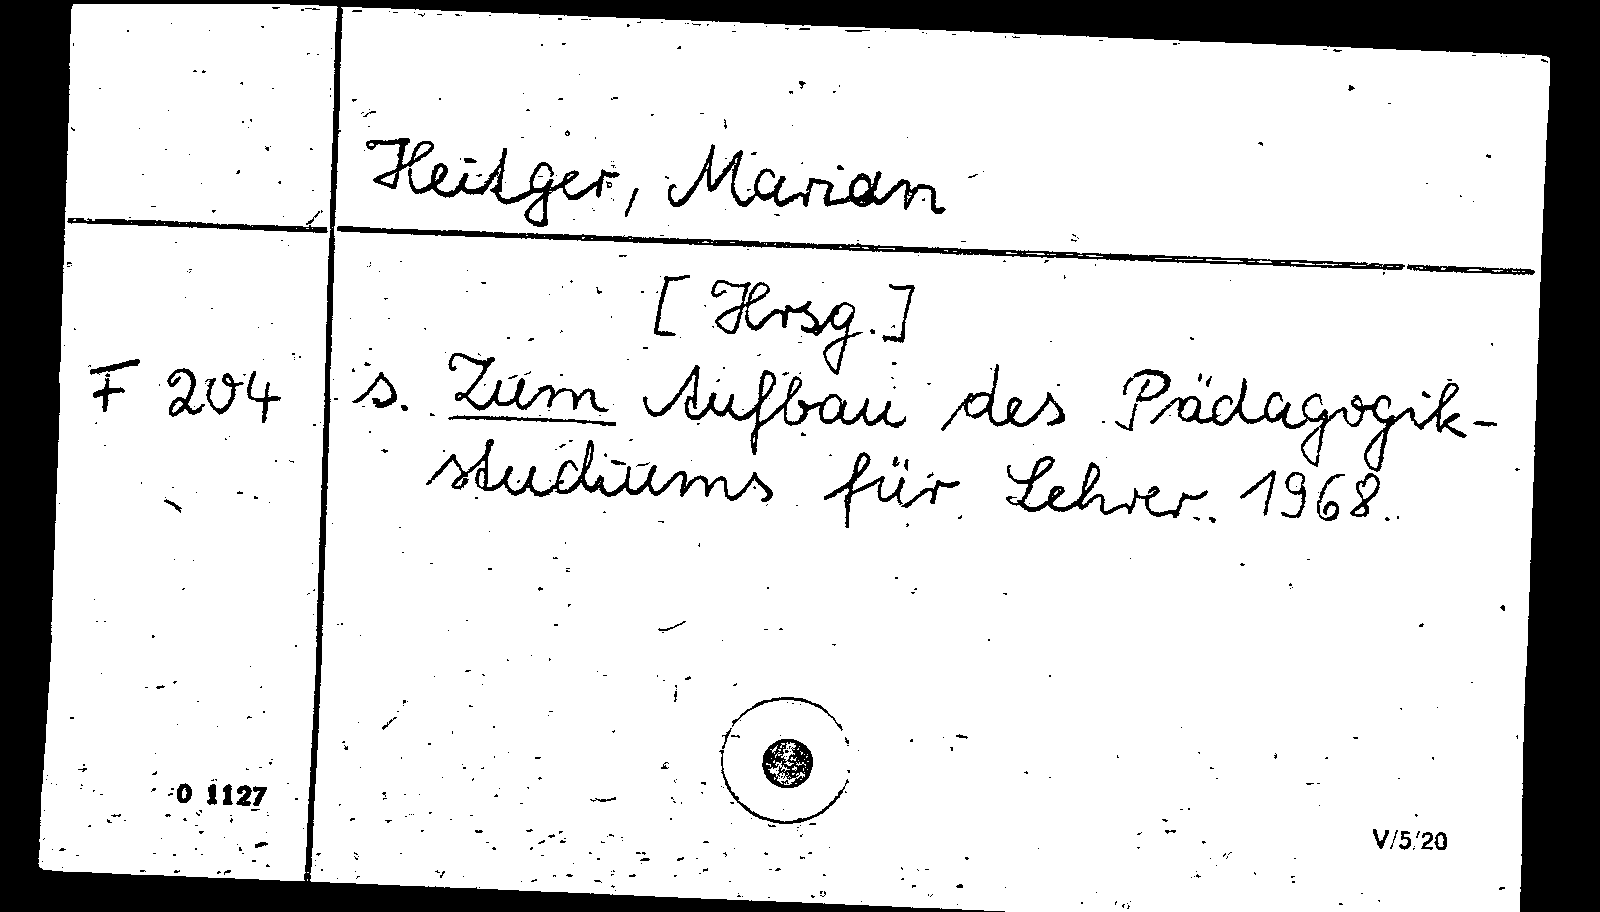 Heitger, Marian
[Hrsg.]
F 204 s. Zum Aufbau des Pädagogik-
studiums für Lehrer. 1968.
O 1127
V/5/20